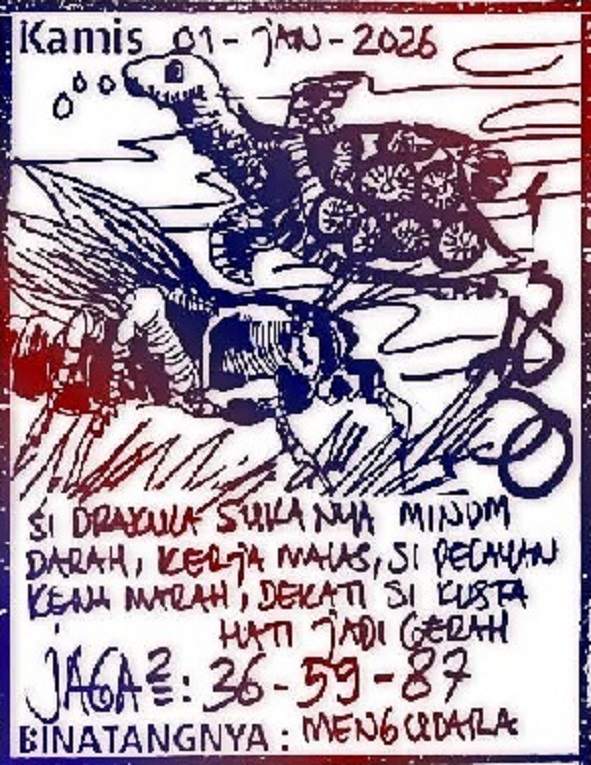 Kamis 01-JAN-2026
SI DRAKULA SUKANYA MINUM
DARAH, KERJA MALAS, SI PELAYAN
KENA MARAH, DEKATI SI KUSTA
HATI JADI GERAH
JAGA²: 36-59-87
BINATANGNYA : MENGUDARA